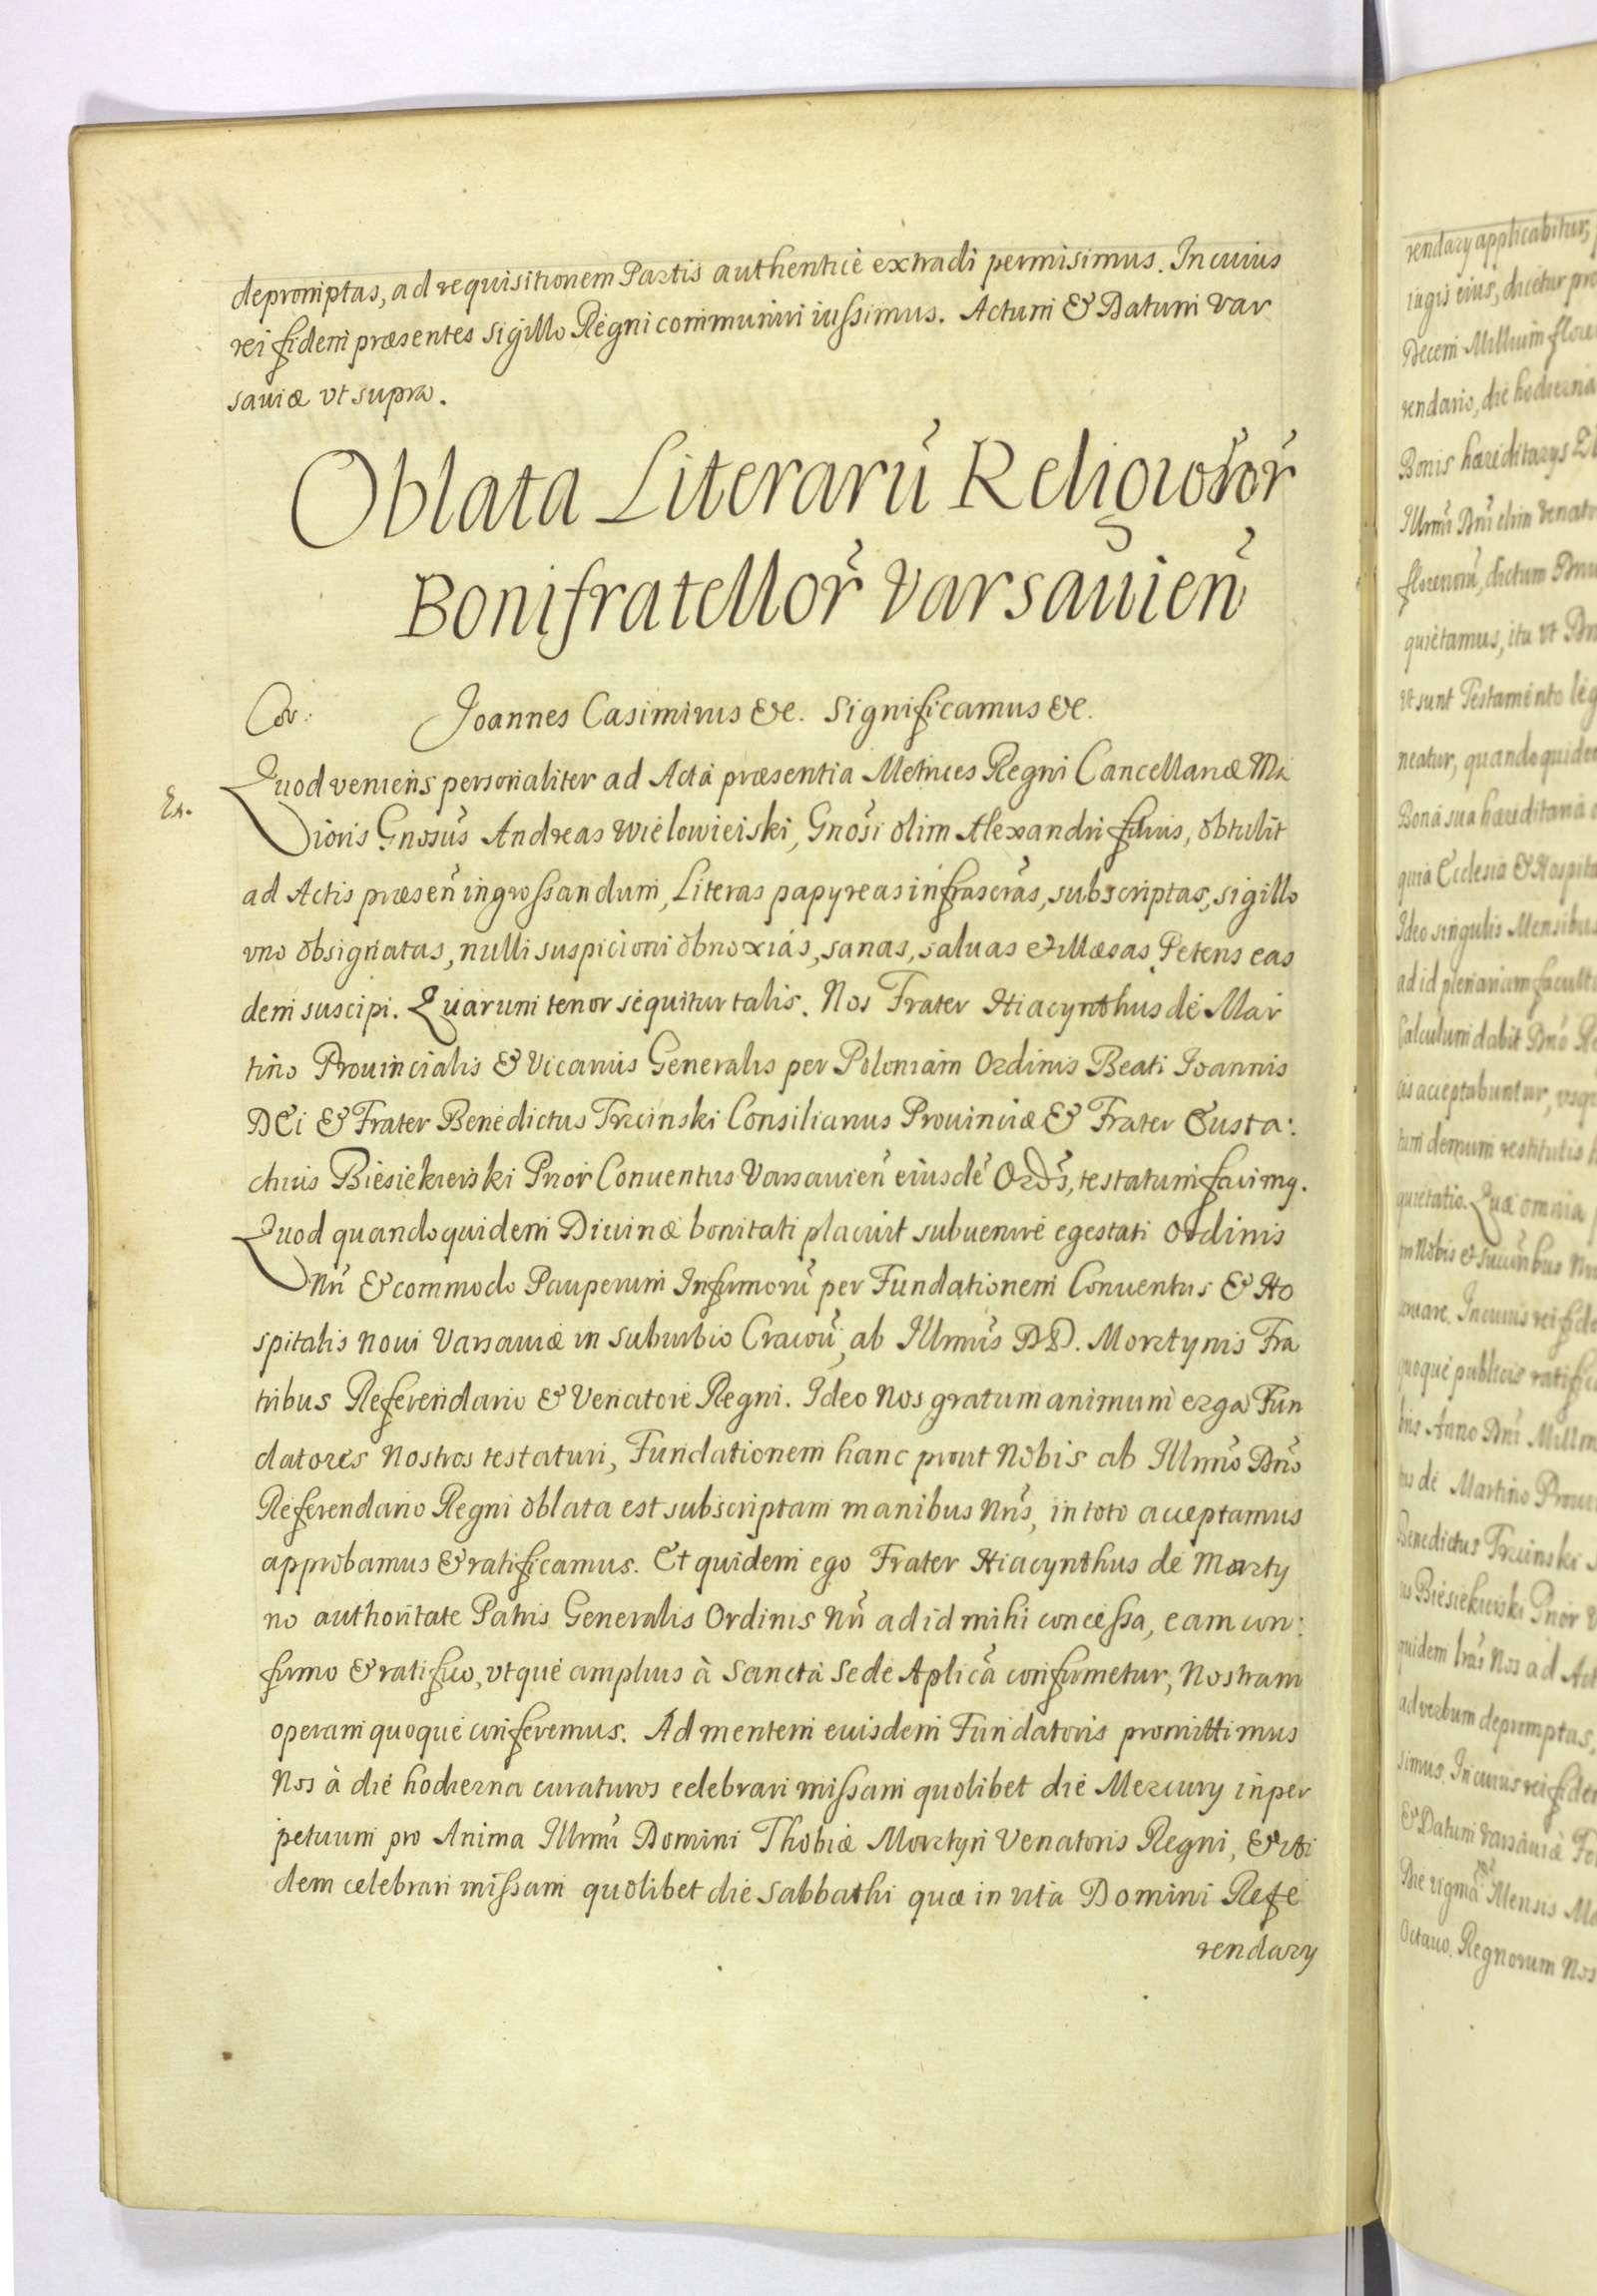 depromptas, ad requisitionem Partis authenticè extradi permisimus. In cuius
rei fidem præsentes sigillo Regni communiri iussimus. Actum & Datum Var
sauiæ vt supra.
Oblata Literarũ Religiosor̃
Bonifratellor̃ Varsauień
Cor: Joannes Casimirus &c. Significamus &c.
Ex. Quod veniens personaliter ad Acta præsentia Metrices Regni Cancellariæ Ma
ioris Gnosus Andreas Wielowieiski, Gnosi olim Alexandri filius, obtulit
ad Actis præseñ ingrossandum, Literas papyreas infrascras, subscriptas, sigillo
vno obsignatas, nulli suspicioni obnoxias, sanas, saluas et illæsas Petens eas
dem suscipi. Quarum tenor sequitur talis. Nos Frater Hiacynthus de Mar
tino Prouincialis & Vicarius Generalis per Poloniam Ordinis Beati Joannis
DEi & Frater Benedictus Trzcinski Consiliarius Prouinciæ & Frater Eusta:
chius Biesiekierski Prior Conuentus Varsauień eiusdẽ Ordis, testatum facimq.
Quod quandoquidem Diuinæ bonitati placuit subuenire egestati Ordinis
Nri & commodo Pauperum Infirmorũ per Fundationem Conuentus & Ho
spitalis noui Varsauiæ in suburbio Cracoũ, ab Illrmis DD. Morztynis Fra
tribus Referendario & Venatore Regni. Ideo Nos gratum animum erga Fun
datores Nostros testaturi, Fundationem hanc prout Nobis ab Illrmo Dño
Referendario Regni oblata est subscriptam manibus Nris, in toto acceptamus
approbamus & ratificamus. Et quidem ego Frater Hiacynthus de Marty
no authoritate Patris Generalis Ordinis Nri ad id mihi concessa, eam con:
firmo & ratifico, vtque amplius à Sancta Sede Aplica confirmetur, Nostram
operam quoque conferemus. Ad mentem euisdem Fundatoris promittimus
Nos à die hodierna curaturos celebrari missam quolibet die Mercury in per
petuum pro Anima Illrmi Domini Thobiæ Morztyn Venatoris Regni, & ibi
dem celebrari missam quolibet die Sabbathi quæ in vita Domini Refe
rendary
rendary applicabitur,
iugis eius, dicetur pro
Decem Millium flore
rendario, die hodierna
Bonis hæreditarys
Illrmi Dni olim Venato
florenorũ, dictum Dnu
quietamus, ita vt Dn
vt sunt Testamento leg
neatur, quandoquidem
Bona sua hæreditaria
quia Ecclesia & Hospita
Ideo singulis Mensibus
ad id plenariam faculta
Calculum dabit Dno Re
acceptabuntur, vsq
tum demum restitutis
quietatio. Quæ omnia
Nobis et succribus Nr
In cuius rei fide
quoque publicis ratifi
Anno Dni Millm
de Martino Proui
Benedictus Trzcinski
Biesiekierski Prior V
quidem lras Nos ad Act
ad verbum depromptas,
simus. In cuius rei fidem
& Datum Varsauiæ Fe
Die Mensis Ma
Octauo. Regnorum Nos